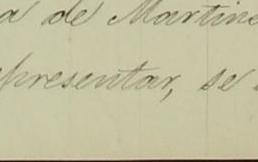 a de Martine
presentar, se